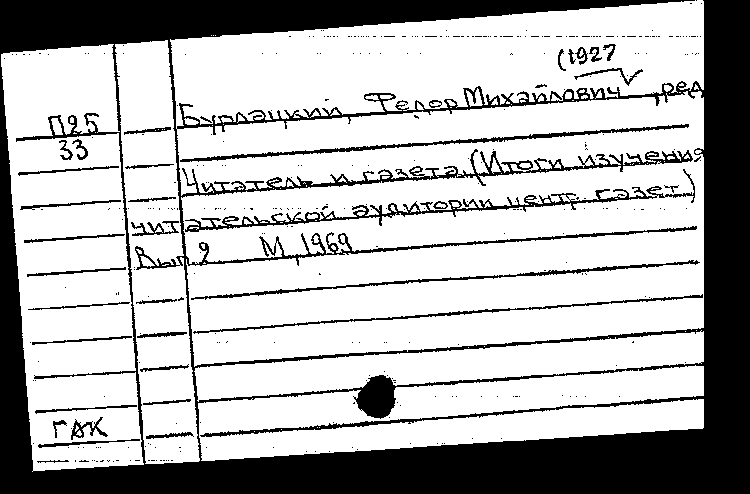 (1927
П25
Бурлацкий, Федор Михайлович, ред
33
Читатель и газета. (Итоги изучения
читательской аудитории центр. газет.)
Вып. 2 М, 1969
ГАК